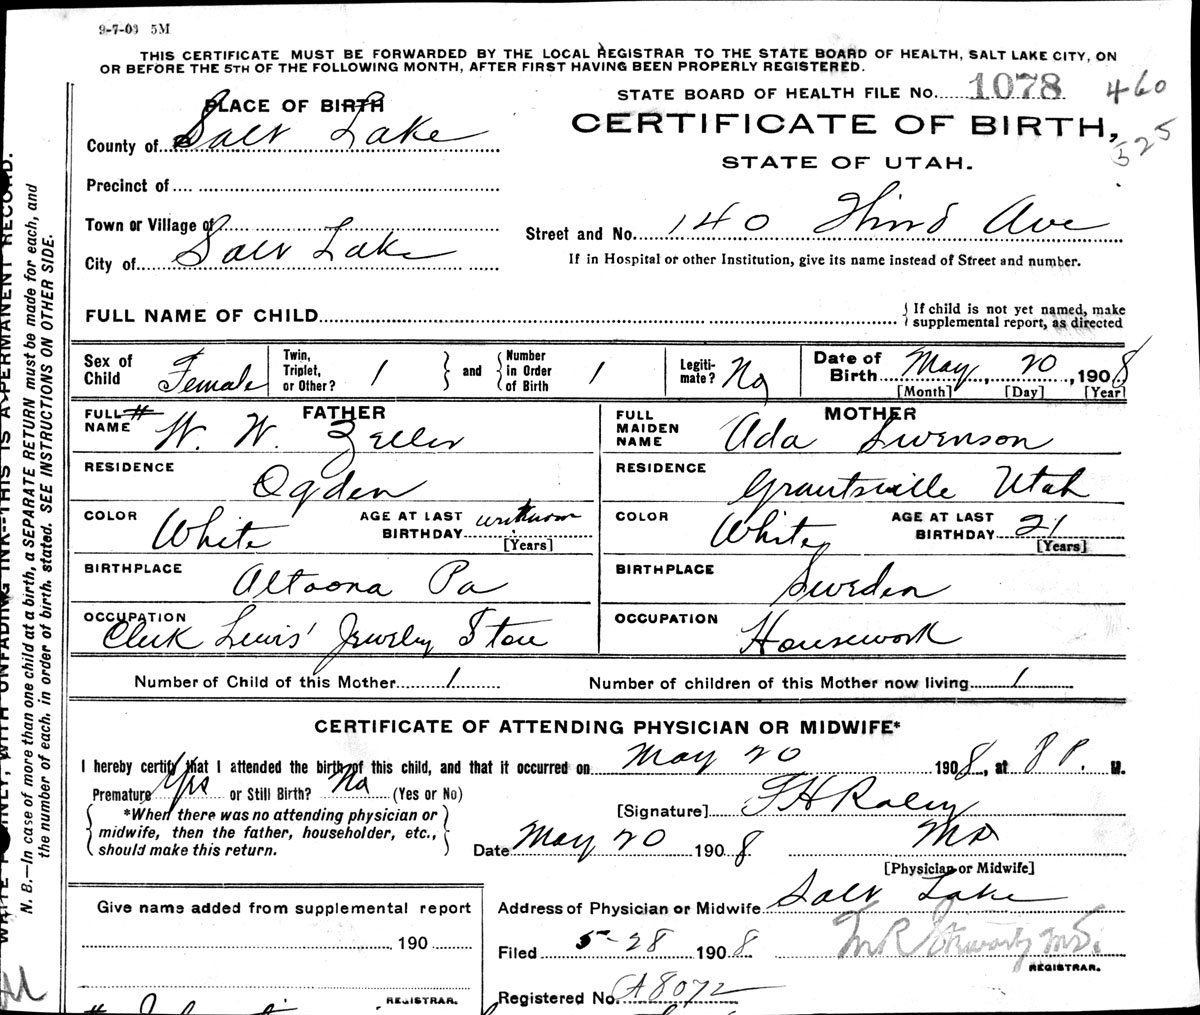 9-7-08 5M
THIS CERTIFICATE MUST BE FORWARDED BY THE LOCAL REGISTRAR TO THE STATE BOARD OF HEALTH, SALT LAKE CITY, ON
OR BEFORE THE 5TH OF THE FOLLOWING MONTH, AFTER FIRST HAVING BEEN PROPERLY REGISTERED.
STATE BOARD OF HEALTH FILE No. 1078 460
525
PLACE OF BIRTH
CERTIFICATE OF BIRTH,
STATE OF UTAH.
County of Salt Lake
Precinct of
Town or Village of
City of Salt Lake
Street and No. 140 Third Ave
If in Hospital or other Institution, give its name instead of Street and number.
FULL NAME OF CHILD
{ If child is not yet named, make
supplemental report, as directed
Sex of Child Female
Twin, Triplet, or Other? 1 } and { Number in Order of Birth 1
Legiti-mate? No
Date of Birth May, 20, 1908
[Month] [Day] [Year]
FATHER
FULL NAME W. W. Zeller
MOTHER
FULL MAIDEN NAME Ada Swenson
RESIDENCE Ogden
RESIDENCE Grantsville Utah
COLOR White AGE AT LAST BIRTHDAY unknown [Years]
COLOR White AGE AT LAST BIRTHDAY 21 [Years]
BIRTHPLACE Altoona Pa
BIRTHPLACE Sweden
OCCUPATION Clerk Lewis' Jewelry Store
OCCUPATION Housework
Number of Child of this Mother 1 Number of children of this Mother now living 1
CERTIFICATE OF ATTENDING PHYSICIAN OR MIDWIFE*
I hereby certify that I attended the birth of this child, and that it occurred on May 20 1908, at 8 P. M.
Premature Yes or Still Birth? No (Yes or No)
*When there was no attending physician or
midwife, then the father, householder, etc.,
should make this return.
[Signature] F H Raley
MD
[Physician or Midwife]
Date May 20 1908
Address of Physician or Midwife Salt Lake
Give name added from supplemental report
190
REGISTRAR.
Filed 5-28 1908
M R Stewart M.D.
REGISTRAR.
Registered No. A8072
WITH UNFADING INK--THIS IS A PERMANENT RECORD.
N. B.—In case of more than one child at a birth, a SEPARATE RETURN must be made for each, and
the number of each, in order of birth, stated. SEE INSTRUCTIONS ON OTHER SIDE.